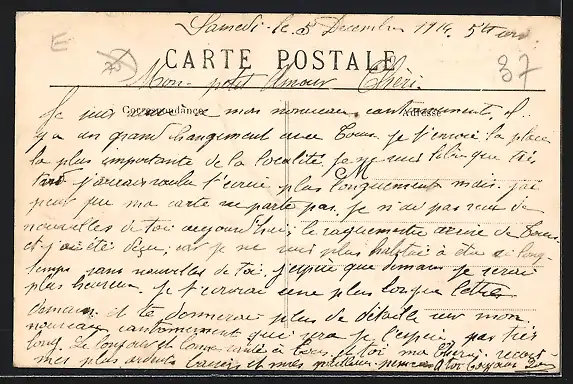 Samedi le 5 Décembre 1914. 5h
E
CARTE POSTALE
37
Mon petit Amour Chéri.
Correspondance
Adresse
Je suis mon nouveau cantonnement, il
y a un grand changement avec Tours. Je t'envoie la place
la plus importante de la localité. Je ne suis libre que très
tard j'aurais voulu t'écrire plus longuement mais j'ai
M
peur que ma carte ne parte pas. Je n'ai pas reçu de
nouvelles de toi aujourd'hui, le vaguemestre arrive de Tours
et j'ai été déçu, car je ne suis plus habitué à être si long-
temps sans nouvelles de toi. J'espère que demain je serai
plus heureux. Je t'enverrai une plus longue lettre
demain et te donnerai plus de détails sur mon
nouveau cantonnement qui sera je l'espère pas très
long. Le bonjour et bonne santé à tous. à toi ma Chérie reçois
mes plus ardents baisers et mes meilleures pensées